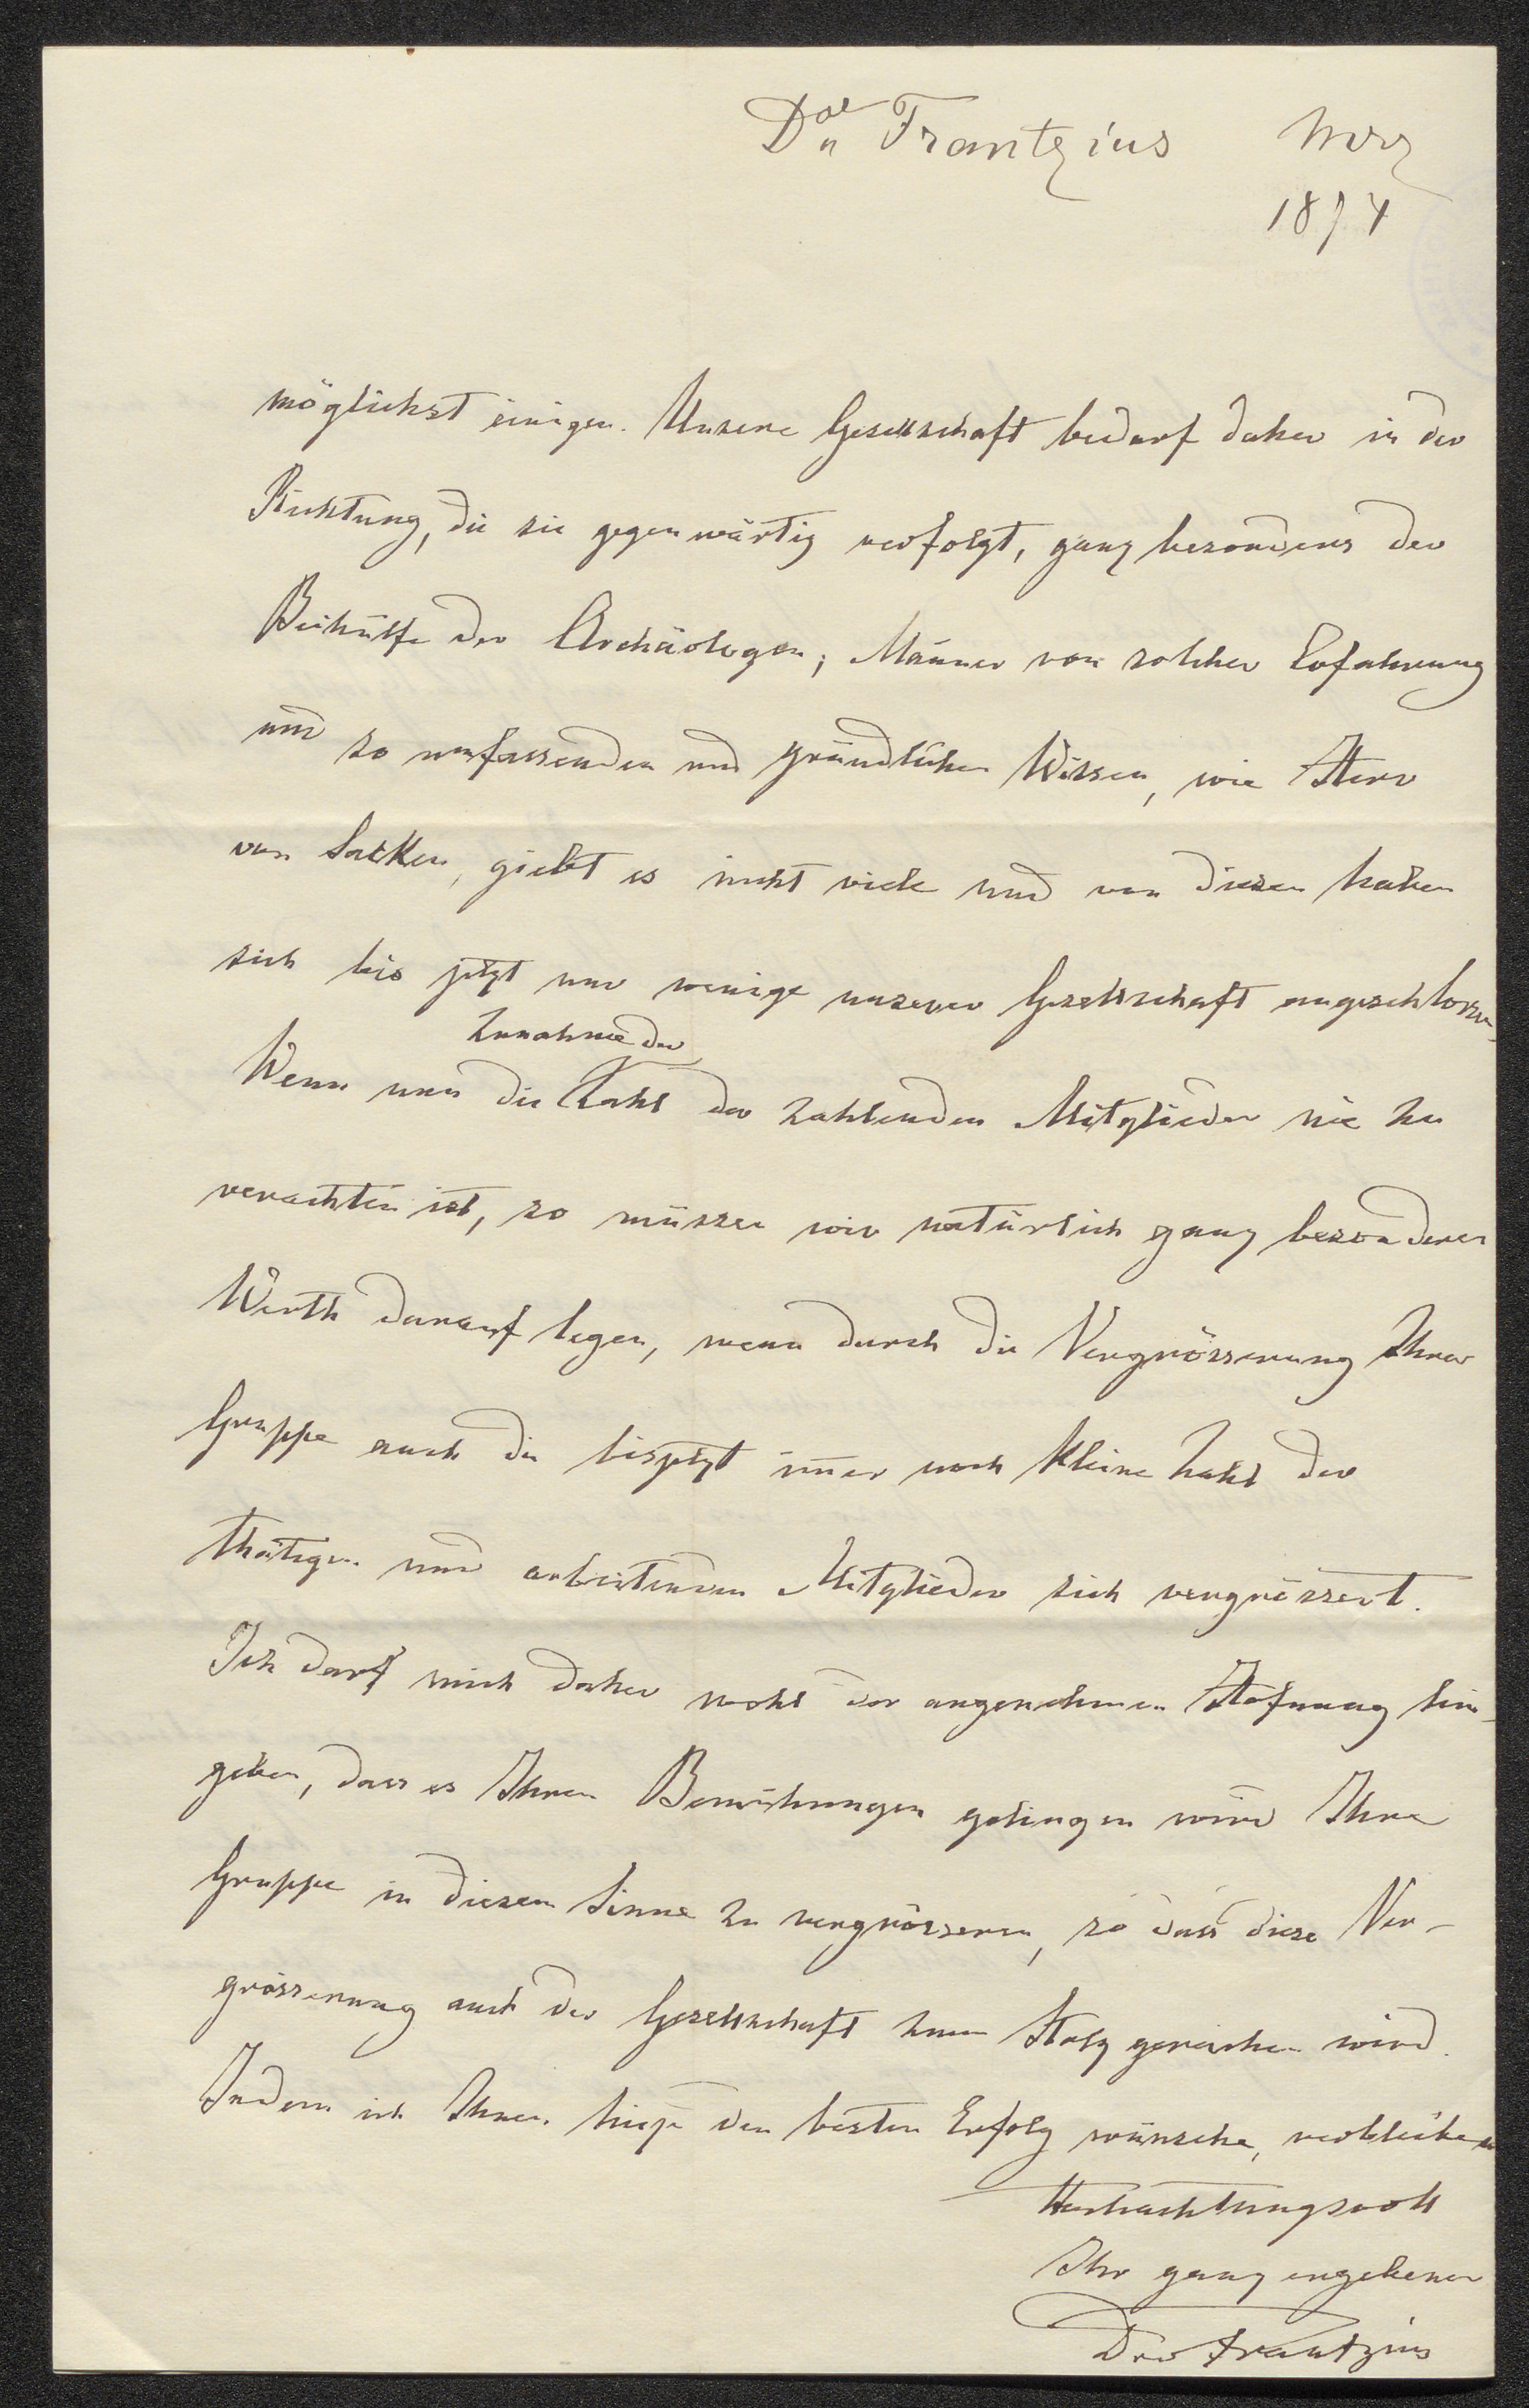 Dr v Frantzius März
1874
möglichst einigen. Unsere Gesellschaft bedarf daher in der
Richtung, die sie gegenwärtig verfolgt, ganz besonders der
Beihülfe der Archäologen; Männer von solcher Erfahrung
und so umfassenden und gründlichen Wissen, wie Herr
von Sacken, giebt es nicht viele und von diesen haben
sich bis jetzt nur wenige unserer Gesellschaft angeschlossen
Zunahme der
Wenn nun die Zahl der zahlenden Mitglieder nie zu
verachten ist, so müssen wir natürlich ganz besonderen
Werth darauf legen, wenn durch die Vergrösserung Ihrer
Gruppe auch die bisjetzt immer noch kleine Zahl der
thätigen und arbeitenden Mitglieder sich vergrössert.
Ich darf mich daher wohl der angenehmen Hofnung hin-
geben, dass es Ihren Bemühungen gelingen wird Ihre
Gruppe in diesem Sinne zu vergrösseren, so dass diese Ver-
grösserung auch der Gesellschaft zum Stolz gereichen wird.
Indem ich Ihnen hiezu den besten Erfolg wünsche, verbleibe
Hochachtungsvoll
Ihr ganz ergebener
Dr v Frantzius